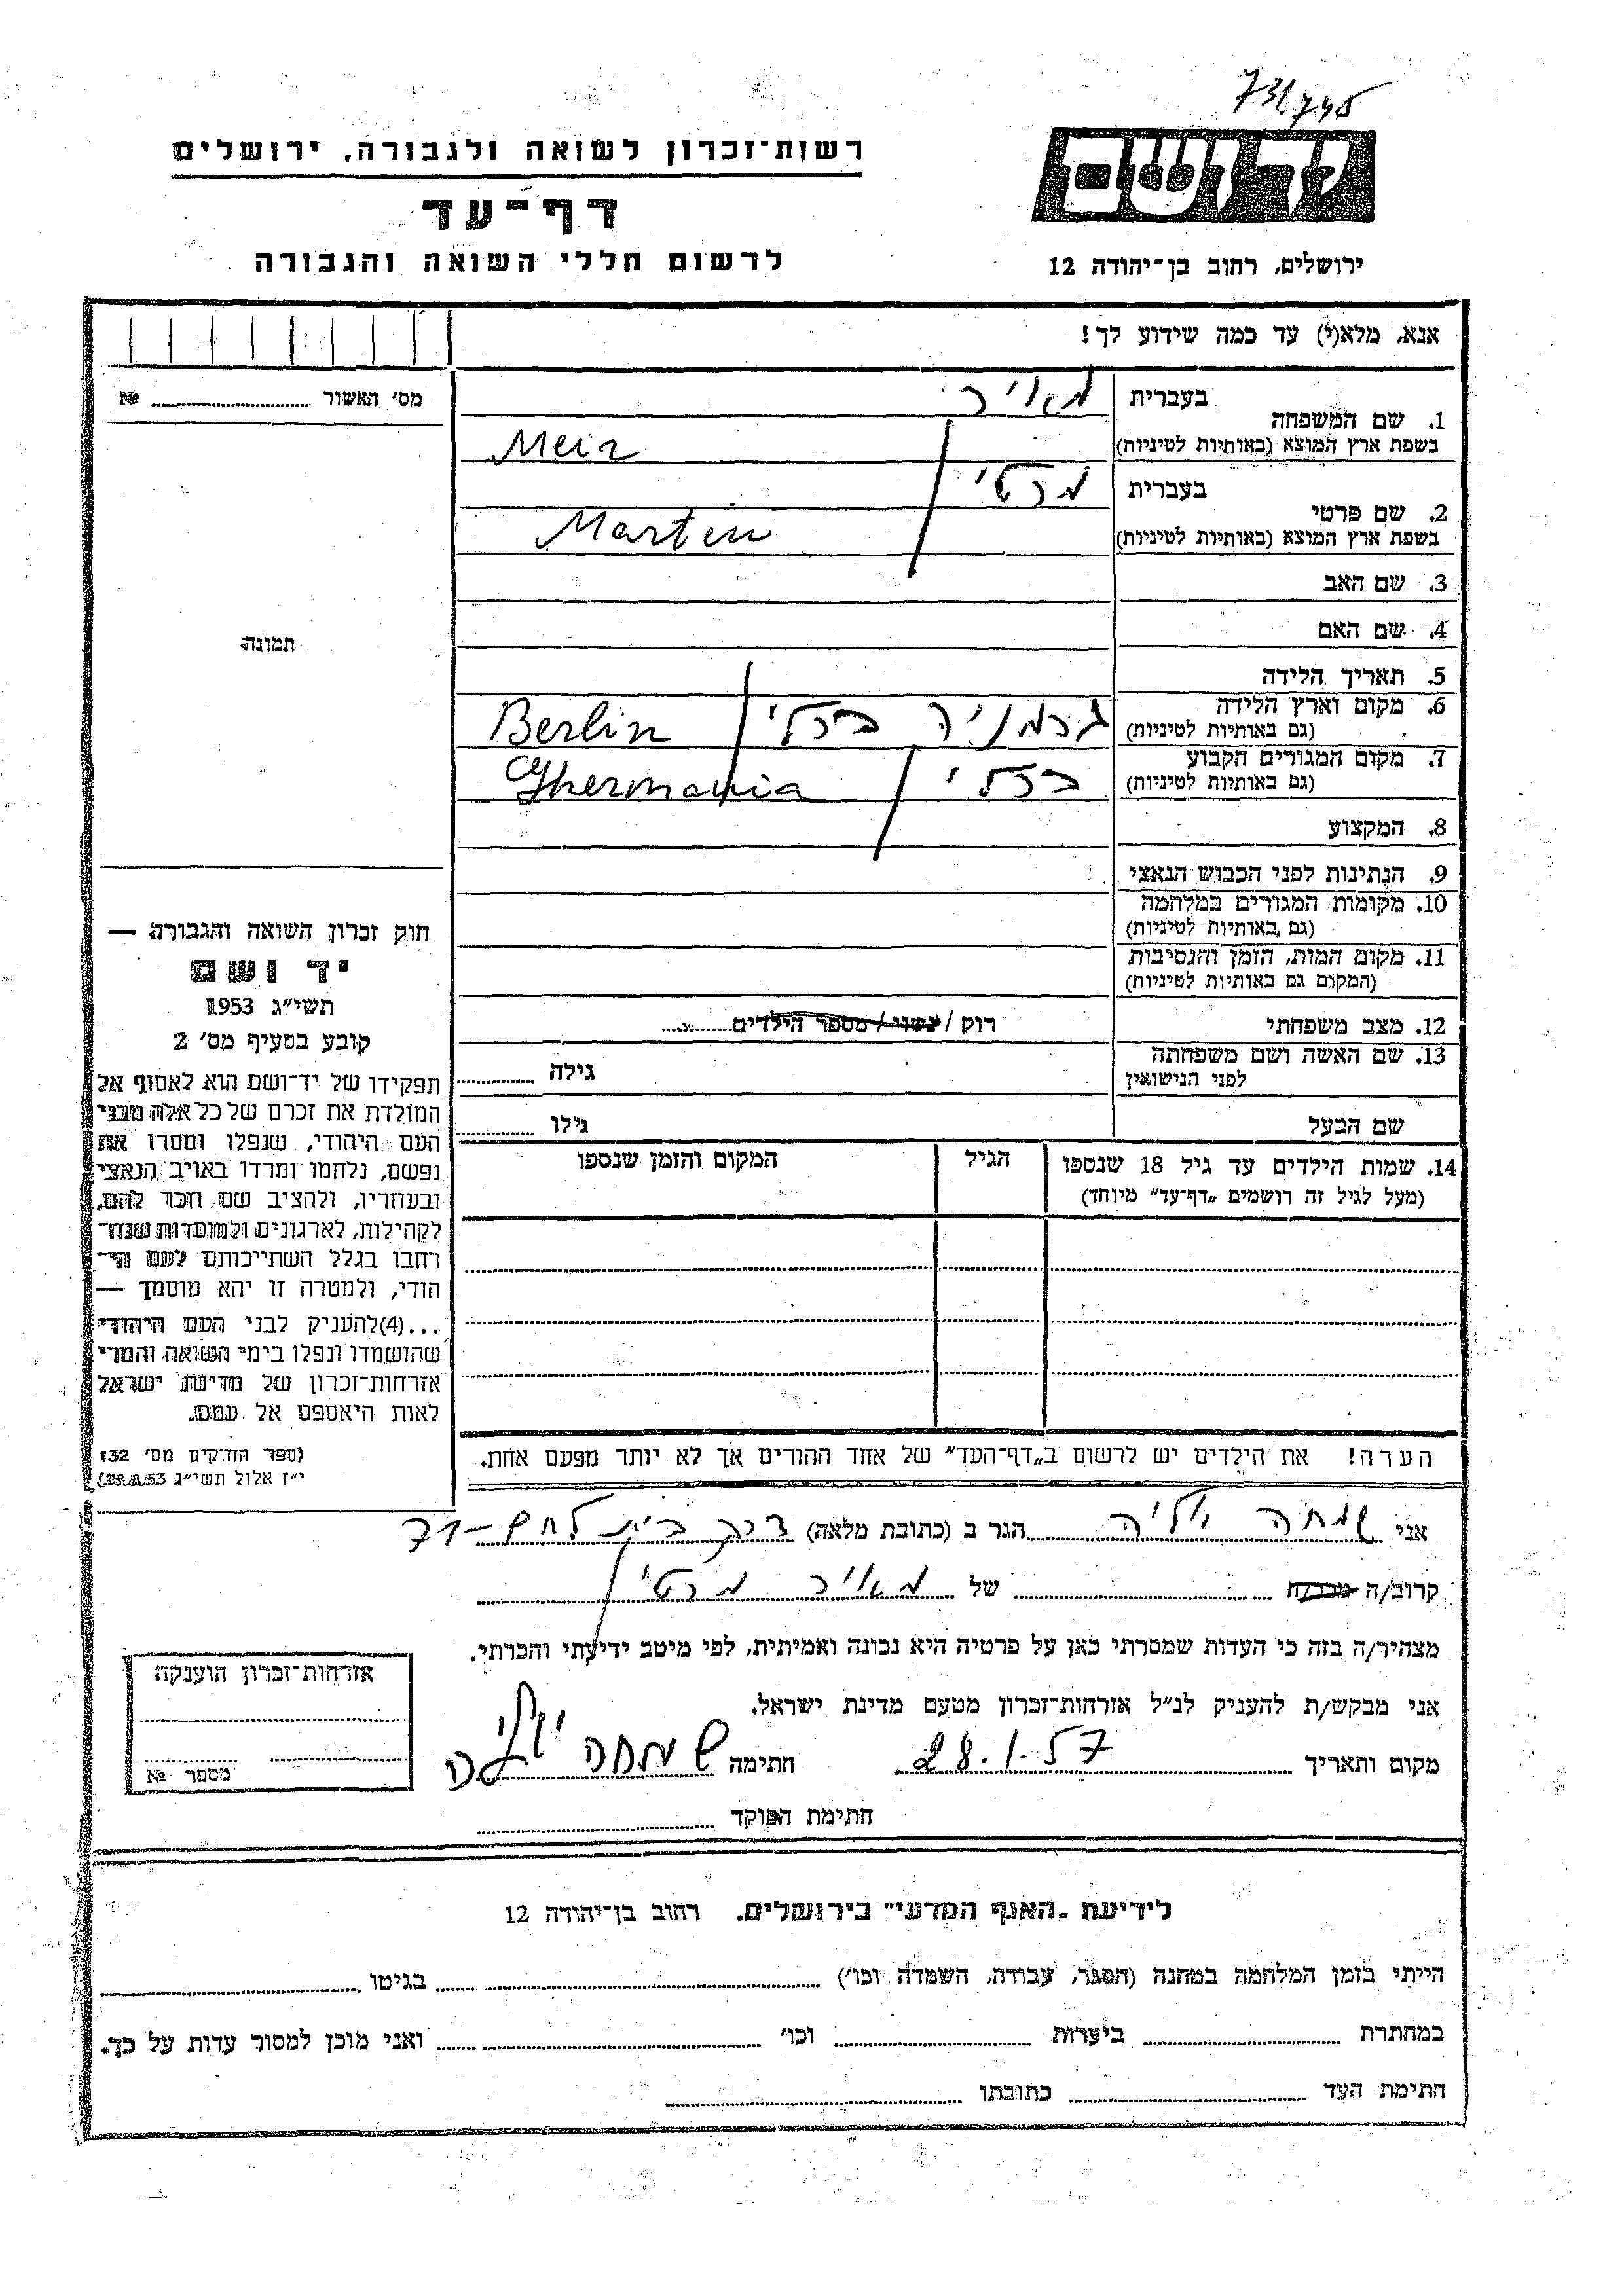 731/745
ידושם
רשות־זכרון לשואה ולגבורה, ירושלים
דף־עד
לרשום חללי השואה והגבורה
ירושלים, רחוב בן־יהודה 12
אנא, מלא(י) עד כמה שידוע לך!
מס׳ האשור ........ №
1. שם המשפחה
בעברית מאיר
בשפת ארץ המוצא (באותיות לטיניות) Meir
2. שם פרטי
בעברית מרטין
בשפת ארץ המוצא (באותיות לטיניות) Martin
3. שם האב
4. שם האם
תמונה
5. תאריך הלידה
6. מקום וארץ הלידה גרמניה ברלין Berlin
(גם באותיות לטיניות)
7. מקום המגורים הקבוע ברלין Ghermania
(גם באותיות לטיניות)
8. המקצוע
9. הנתינות לפני הכבוש הנאצי
10. מקומות המגורים במלחמה
(גם באותיות לטיניות)
11. מקום המות, הזמן והנסיבות
(המקום גם באותיות לטיניות)
12. מצב משפחתי רוק / נשוי / מספר הילדים ........
13. שם האשה ושם משפחתה
לפני הנישואין
גילה ........
שם הבעל גילו ........
14. שמות הילדים עד גיל 18 שנספו
(מעל לגיל זה רושמים „דף־עד״ מיוחד)
הגיל
המקום והזמן שנספו
הערה! את הילדים יש לרשום ב„דף־העד״ של אחד ההורים אך לא יותר מפעם אחת.
חוק זכרון השואה והגבורה —
יד ושם
תשי״ג 1953
קובע בסעיף מס׳ 2
תפקידו של יד־ושם הוא לאסוף אל
המולדת את זכרם של כל אלה מבני
העם היהודי, שנפלו ומסרו את
נפשם, נלחמו ומרדו באויב הנאצי
ובעוזריו, ולהציב שם וזכר להם,
לקהילות, לארגונים ולמוסדות שנח־
רחבו בגלל השתייכותם לעם הי־
הודי, ולמטרה זו יהא מוסמך —
...(4)להעניק לבני העם היהודי
שהושמדו ונפלו בימי השואה והמרי
אזרחות־זכרון של מדינת ישראל
לאות היאספם אל עמם.
(ספר החוקים מס׳ 132
י״ז אלול תשי״ג 28.8.53)
אני שמחה יוליה הגר ב (כתובת מלאה) דרך בית לחם - 71
קרוב/ה מכר/ה ........ של מאיר מרטין
מצהיר/ה בזה כי העדות שמסרתי כאן על פרטיה היא נכונה ואמיתית, לפי מיטב ידיעתי והכרתי.
אני מבקש/ת להעניק לנ״ל אזרחות־זכרון מטעם מדינת ישראל.
מקום ותאריך 28.1.57 חתימה שמחה יוליה
חתימת הפוקד ........
אזרחות־זכרון הוענקה
מספר №
לידיעת „האגף המדעי״ בירושלים. רחוב בן־יהודה 12
הייתי בזמן המלחמה במחנה (הסגר, עבודה, השמדה וכו׳) ........ בגיטו ........
במחתרת ........ ביערות ........ וכו׳ ........ ואני מוכן למסור עדות על כך.
חתימת העד ........ כתובתו ........